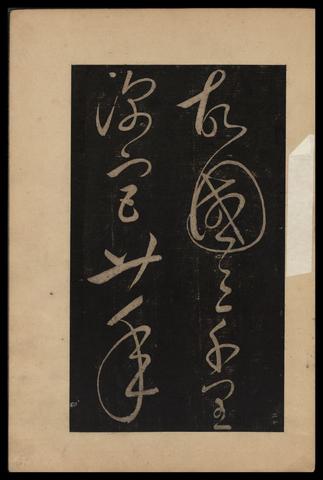 故國三千里
深宮廿年